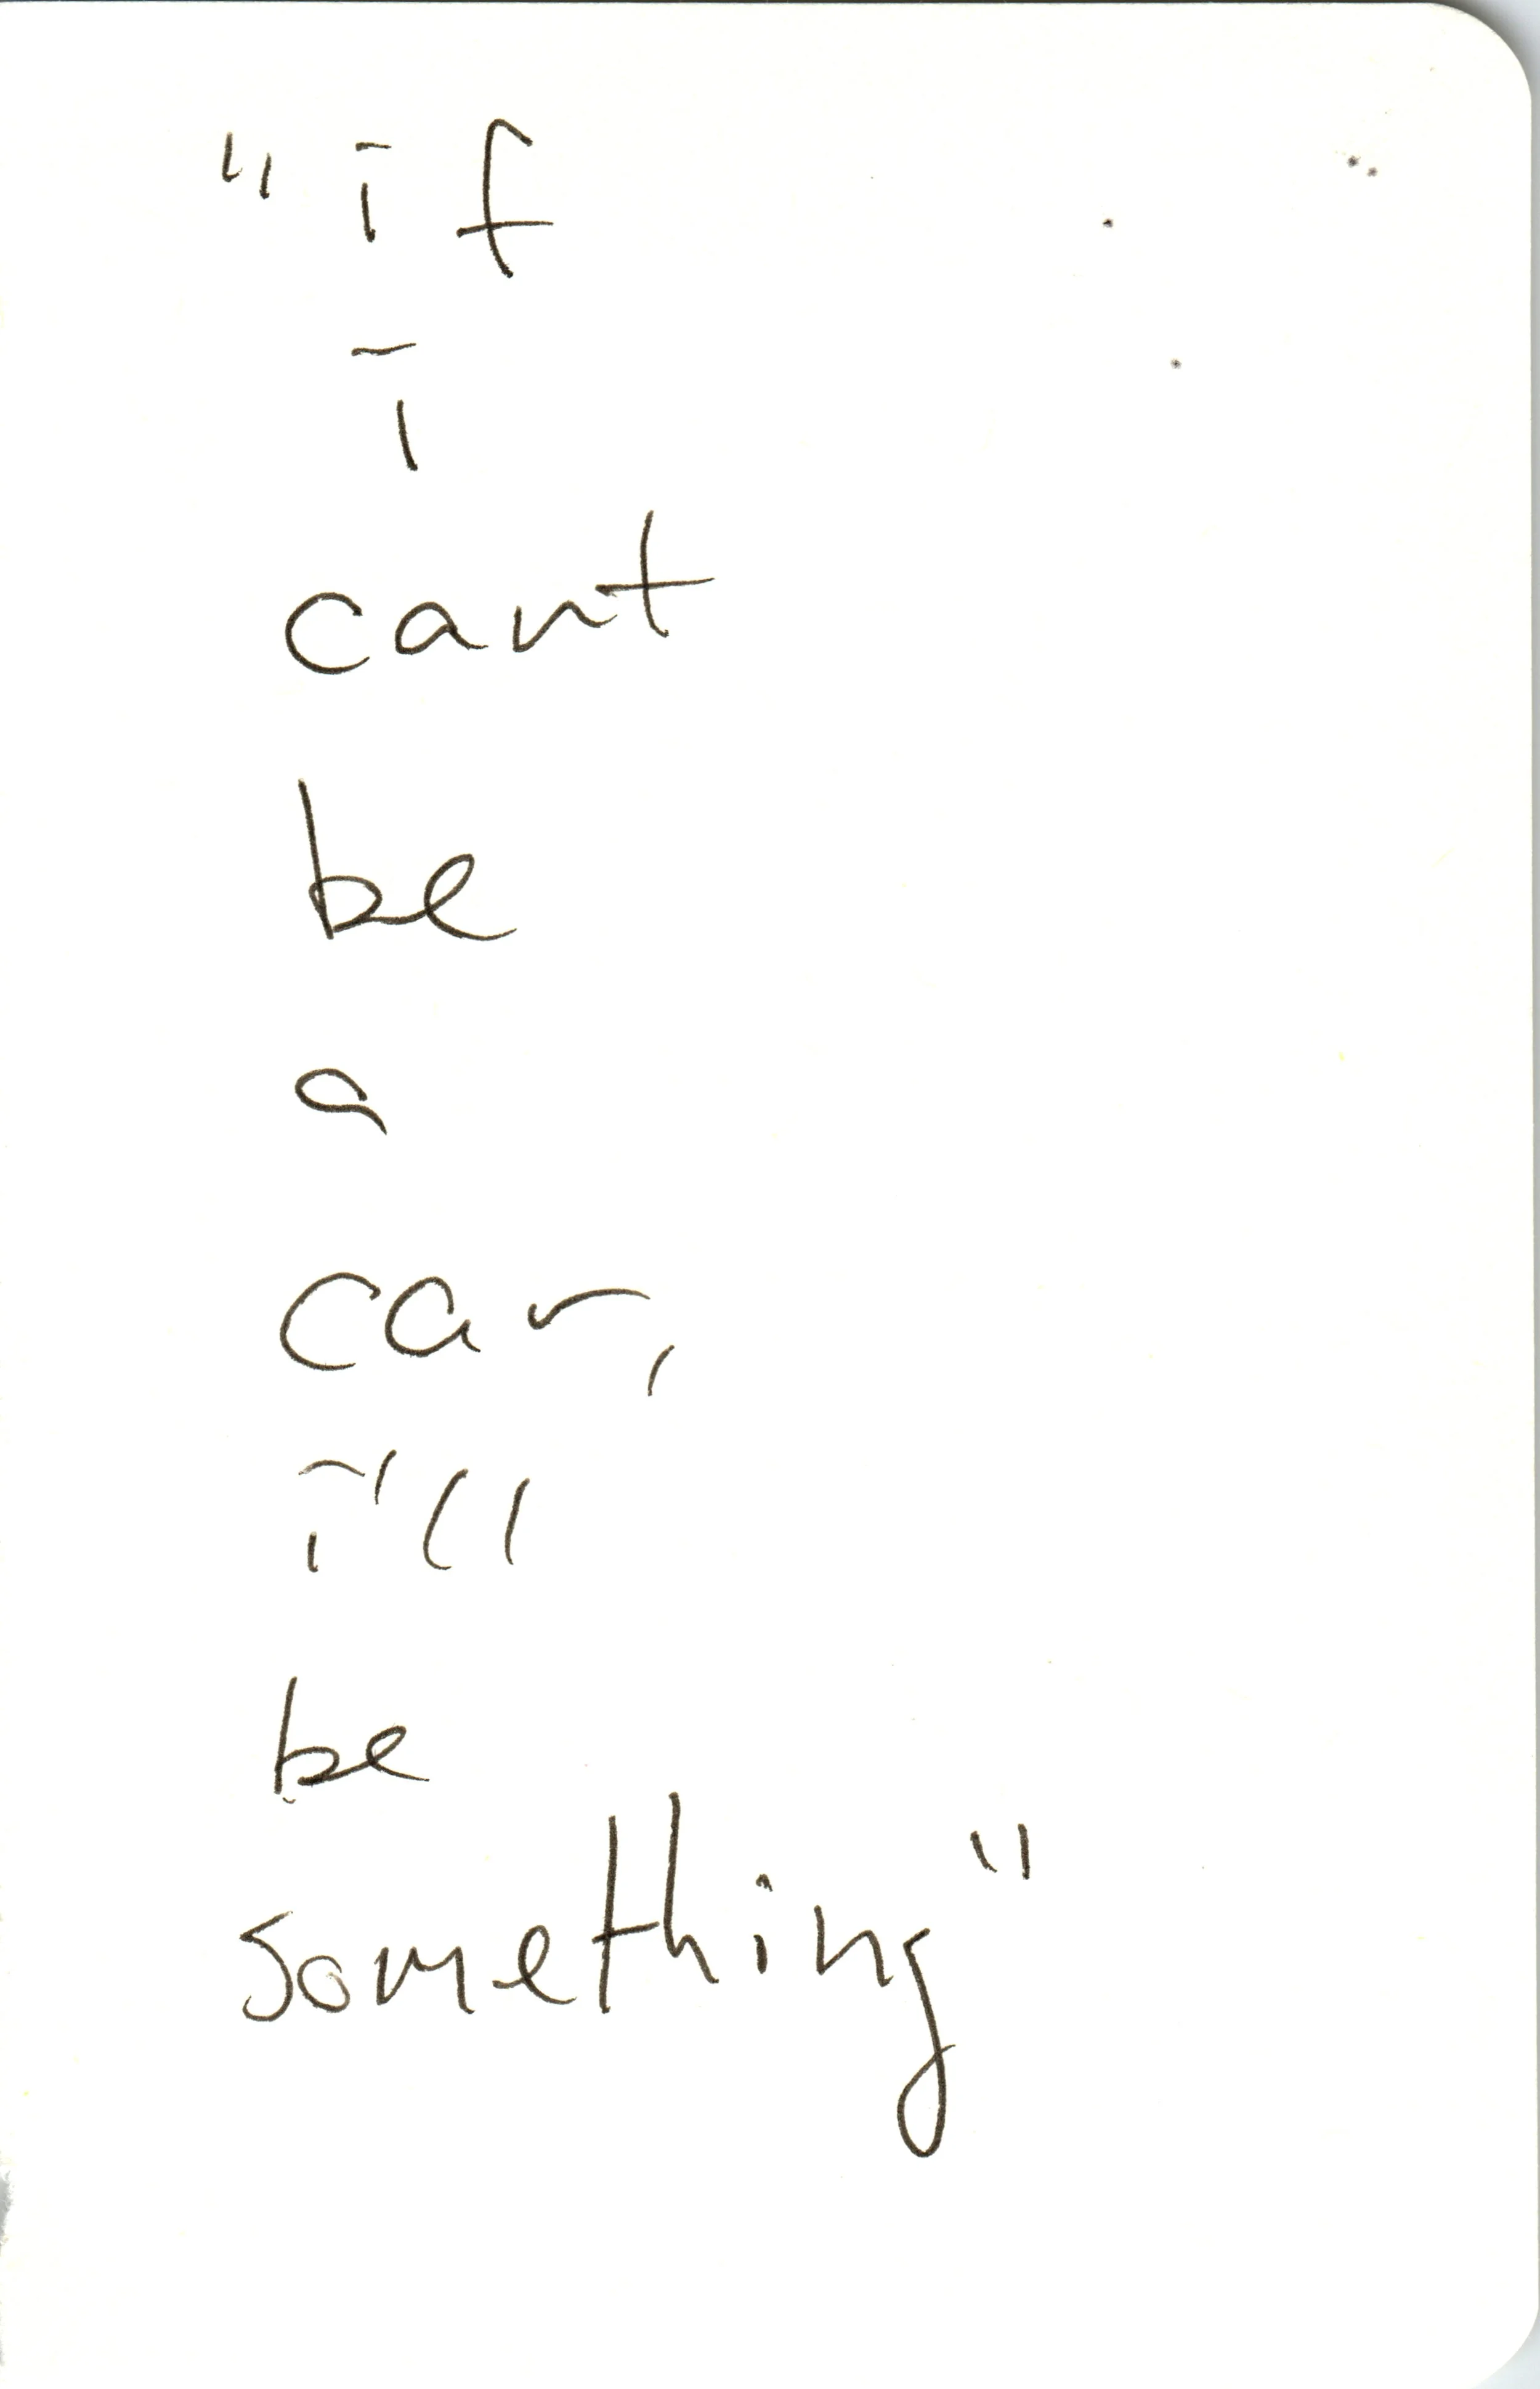 "if
i
cant
be
a
car,
i'll
be
something"